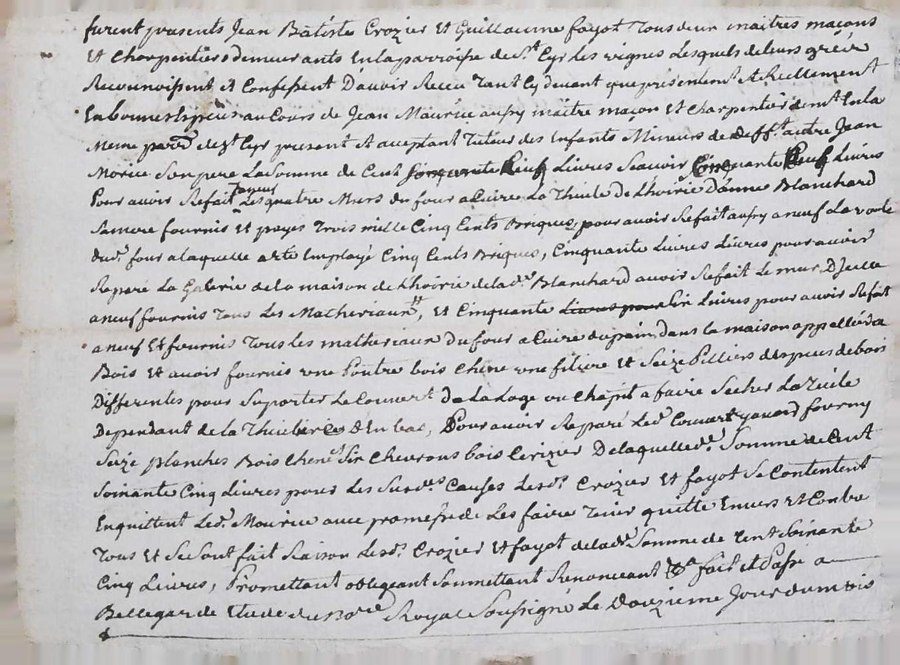 furent presents Jean Batiste Crozier et Guillaume fayot tous deux maitres maçons
et Charpentiers demeurants En la parroisse de St Cyr Les vignes Lesquels de leurs gré
Reconnoissent et Confessent D'avoir Receu tant Cy devant que présentement et Reellement
En bonnes Especes au Cours de Jean Maurice aussy maître maçon et Charpentier demt En la
Meme parrse de St Cyr present et acceptant Tuteur des Enfants Mineurs de defft autre Jean
Morice Son pere La Somme de Cent Neuf Livres Scavoir Cinquante Neuf Livres
Pour avoir Refait Les quatre Murs du four a Cuire La Thuile de Lhoirie D'anne Blanchard
Sa mere fournis et payes Trois mille Cinq Cents Briques, pour avoir Refait aussy a neuf La voute
dud. four a laquelle a ete Employé Cinq Cents Briques, Cinquante Livres Livres pour avoir
Reparé La Galerie de la maison de Lhoirie de lad. Blanchard avoir Refait Le mur D'icelle
a neuf fournis Tous Les Matheriaux, et Cinquante Six Livres pour avoir Refait
a neuf Et fournis Tous les matheriaux du four a Cuire du pain dans la maison appellée du
Bois et avoir fournis une Poutre bois Chene une filiere et Seize Pilliers d'Especes de bois
Differentes pour Suporter Le Couvert De La Loge ou Chapit a faire Secher La Tuile
Dependant de la Thuilerie D'En bas, Pour avoir Reparé Led. Couvert y avoir fourny
Seize planches Bois Chene Six Chevrons bois Cerizier De laquelle de. Somme de Cent
Soixante Cinq Livres pour Les Susdes Causes Lesd. Crozier et fayot Se Contentent
En quittent Led. Maurice avec promesse de Les faire Tenir quitte Envers Et Contre
Tous et Se Sont fait Raison Lesd. Crozier et fayot de lade Somme de Cent Soixante
Cinq Livres, Promettant obligeant Soumettant Renonceant fait et Passé a
Bellegarde Etude du Nore Royal Soussigné Le Douzieme Jour du mois